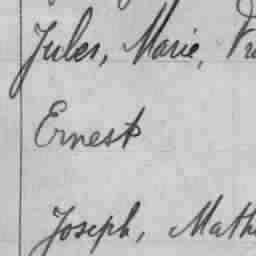 Jules, Marie,
Ernest
Joseph,